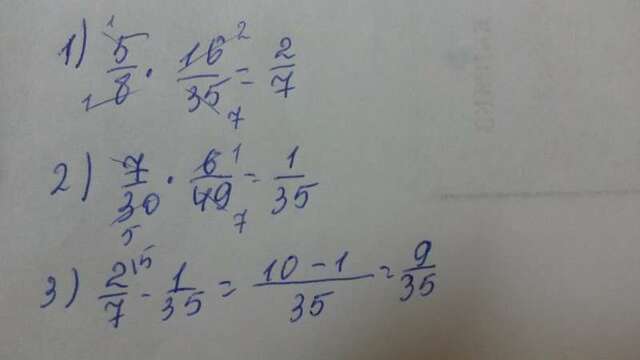 1) 5/8 · 16/35 = 2/7
1 1 2 7
2) 7/30 · 6/49 = 1/35
5 1 7
3) 2/7 - 1/35 = 10-1/35 = 9/35
15